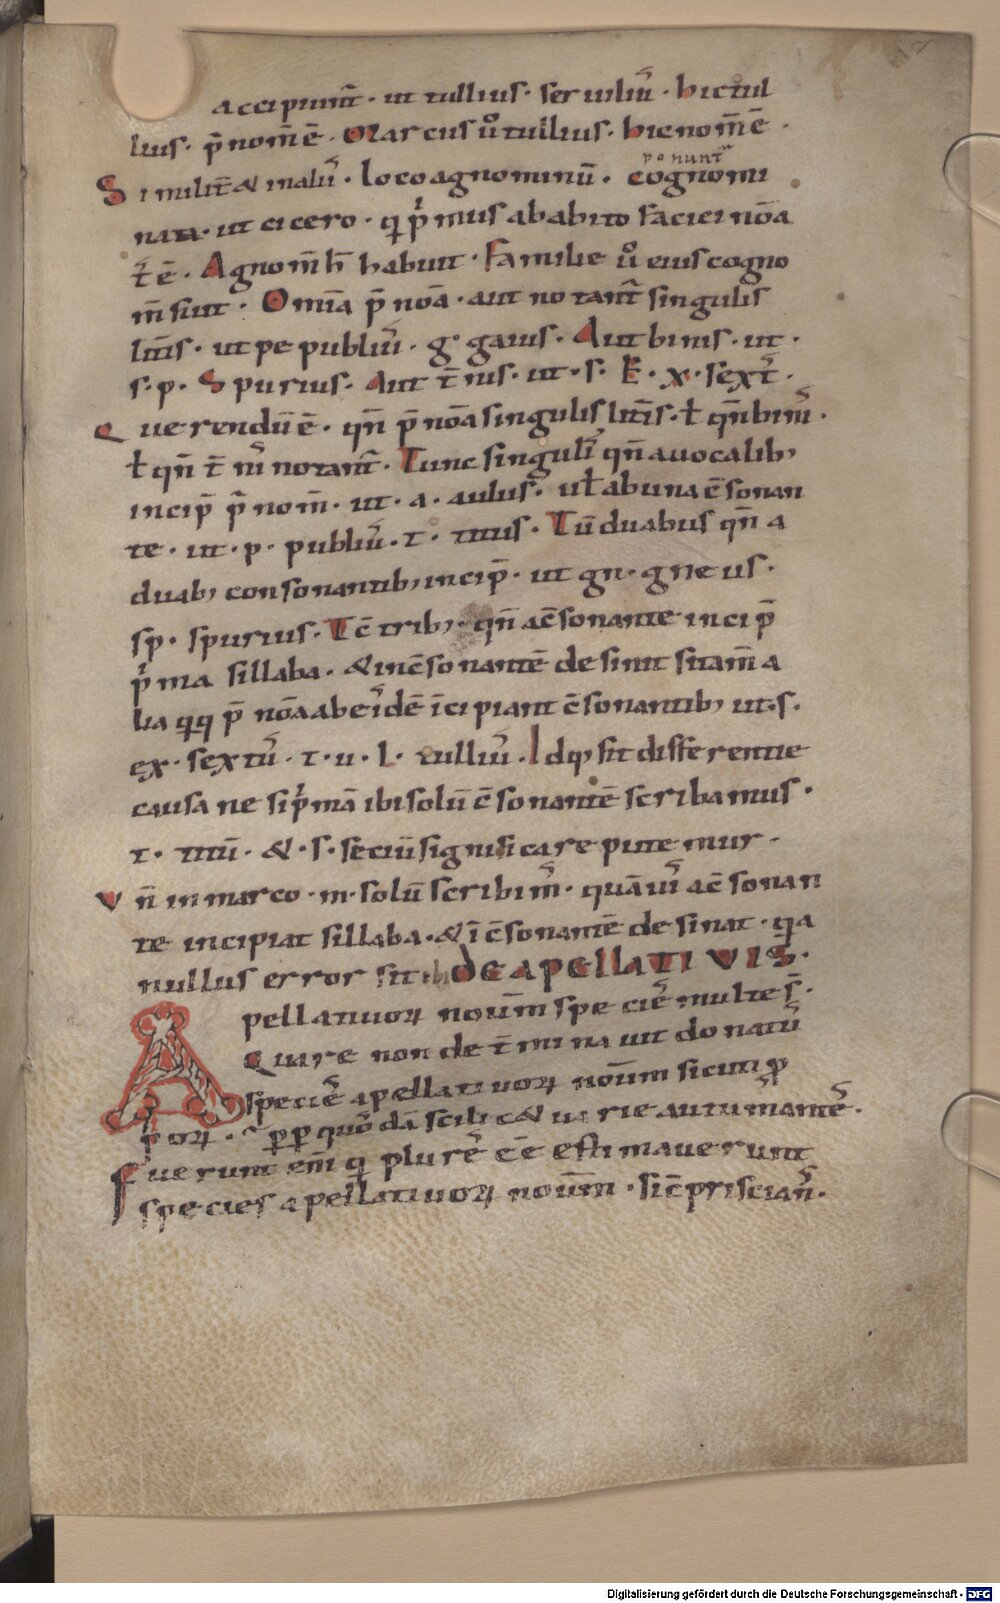 7
accipiunt̄ · ut tullius · seruiliu᷒ · hic tul
lius · p̄nom̄ ē · Marcus u̔ tullius · hic nom̄ ē ·
Similit̄ & in aliı᷒ · loco agnominū · cognomi
ponunt᷒
nata · ut cicero · q p̍mus ab abito faciei nōa
t̄ ē · Agnom̄ h̄ habuit · Familie u̔ eius cogno
m̄ sunt · Omīa p̄nōa · aut notant̄ singulis
litt̄is · ut pe publiu᷒ · g · gaius · Aut binis · ut ·
s · p · Spurius · Aut t̄nis · ut · s · E · x · sext᷒ ·
Querendū ē · qn̄ p̄nōa singulis litt̄is · ł qn̄ bini᷒ ·
ł qn̄ t̄ni᷒ notant̄ · Tunc singuli᷒ qn̄ a uocalib;
incip̄ p̄nom̄ · ut · a · aulus · uł ab una c̄sonan
te · ut · p · publiu᷒ · t · titus · Tū duabus qn̄ a
duab; consonantib; incip̄ · ut gn · gneus ·
sp · spurius · Tc̄ trib; · qn̄ a c̄sonante incip̄
p̍ma sillaba · & in c̄sonantē desinit si tam̄ a
lia qq p̄nōa ab eı᷒dē īcipiant c̄sonantib; ut · s ·
ex · sextu᷒ · t · u · l · tulliu᷒ · Idq; fit differentie
causa ne si p̍mā ibi solū c̄sonantē scribamus ·
t · titū · & · s · seciū significare putemur ·
Vn̄ in marco · m · solū scribim᷒ · quāui᷒ a c̄sonan
te incipiat sillaba · & ī c̄sonantē desinat · q̍a
nullus error fit ibi DE APELLATIVIS ·
Apellatiuoꝝ nouı̄m specie᷒ multe s̄ ·
Quare non det̄minauit donatu᷒
specie᷒ apellatiuoꝝ nouı̄m sicuti ꝓ
p̍oꝝ · ꝑꝑ quo᷒dā scilic& uarie autumante᷒ ·
Fuerunt em̄ q plure᷒ c̄c̄ estimauerunt
species apellatiuoꝝ nouı̄m · sic̄ priscian᷒ ·
Digitalisierung gefördert durch die Deutsche Forschungsgemeinschaft - DFG